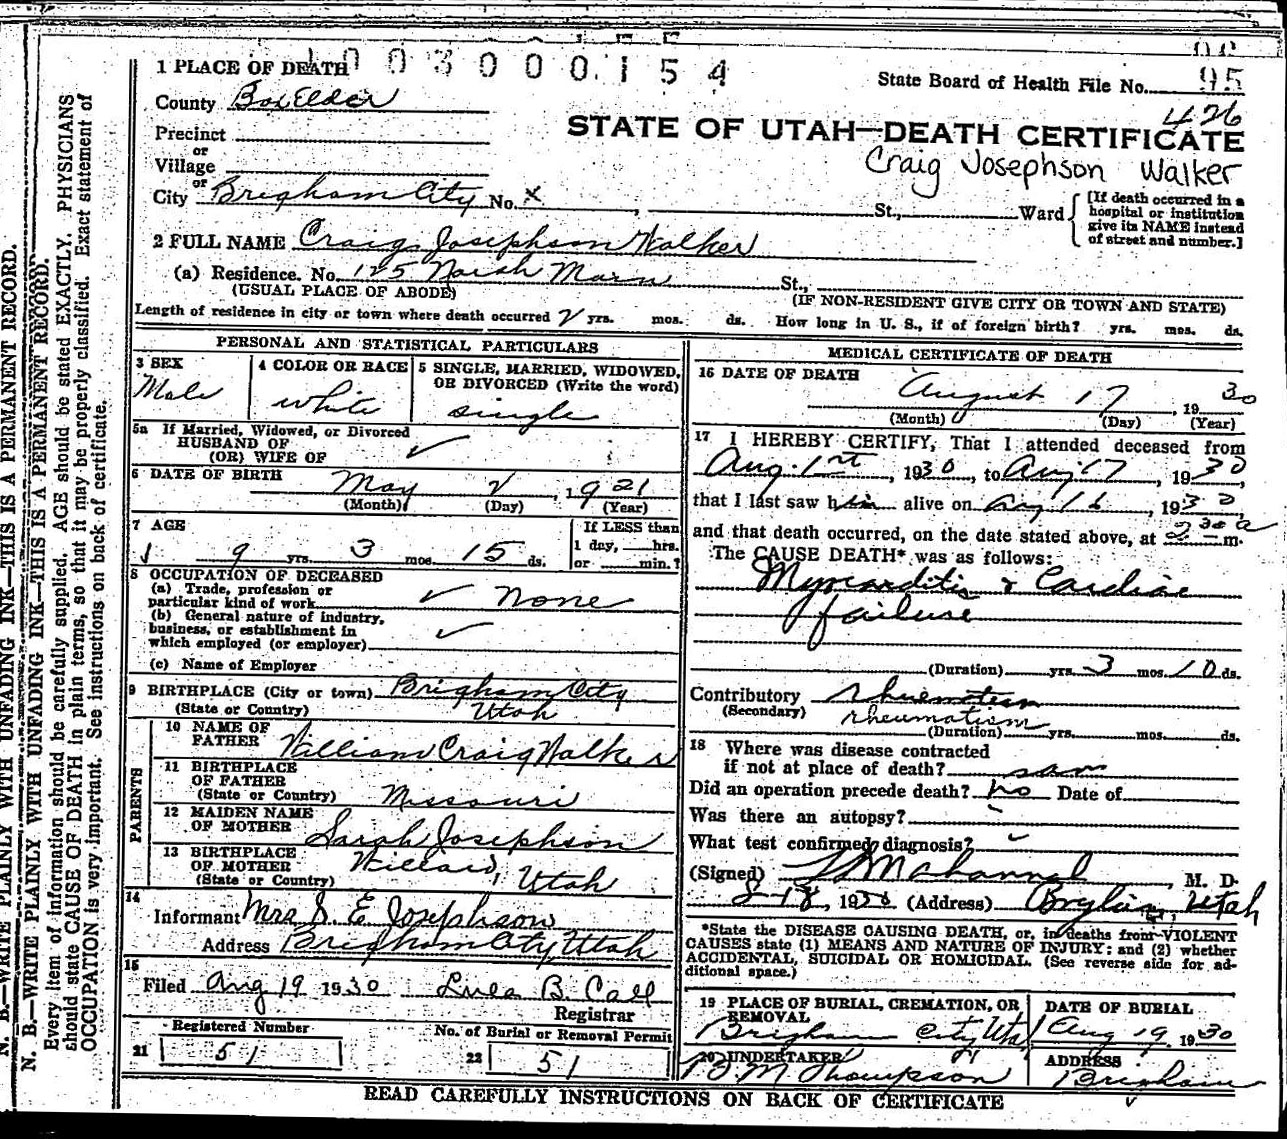 1003000154
1 PLACE OF DEATH
State Board of Health File No. 95
County Box Elder
426
STATE OF UTAH—DEATH CERTIFICATE
Precinct
or
Village
Craig Josephson Walker
or
City Brigham City No. x St., Ward
[If death occurred in a hospital or institution give its NAME instead of street and number.]
2 FULL NAME Craig Josephson Walker
(a) Residence. No. 125 North Main St.,
(USUAL PLACE OF ABODE) (IF NON-RESIDENT GIVE CITY OR TOWN AND STATE)
Length of residence in city or town where death occurred yrs. mos. ds. How long in U. S., if of foreign birth? yrs. mos. ds.
PERSONAL AND STATISTICAL PARTICULARS
3 SEX
Male
4 COLOR OR RACE
white
5 SINGLE, MARRIED, WIDOWED, OR DIVORCED (Write the word)
single
5a If Married, Widowed, or Divorced
HUSBAND OF
(OR) WIFE OF
6 DATE OF BIRTH
May 2, 1921
(Month) (Day) (Year)
7 AGE
9 yrs. 3 mos. 15 ds.
If LESS than
1 day, hrs.
or min.?
8 OCCUPATION OF DECEASED
(a) Trade, profession or
particular kind of work None
(b) General nature of industry,
business, or establishment in
which employed (or employer)
(c) Name of Employer
9 BIRTHPLACE (City or town) Brigham City
(State or Country) Utah
PARENTS
10 NAME OF
FATHER William Craig Walker
11 BIRTHPLACE
OF FATHER
(State or Country) Missouri
12 MAIDEN NAME
OF MOTHER Sarah Josephson
13 BIRTHPLACE
OF MOTHER Willard, Utah
(State or Country)
14
Informant Mrs S. E. Josephson
Address Brigham City, Utah
15
Filed Aug 19 1930 B. Call
Registrar
Registered Number
21 51
No. of Burial or Removal Permit
22 51
MEDICAL CERTIFICATE OF DEATH
16 DATE OF DEATH
August 17, 1930
(Month) (Day) (Year)
17 I HEREBY CERTIFY, That I attended deceased from
Aug. 1st, 1930, to Aug 17, 1930
that I last saw him alive on Aug 16, 1930,
and that death occurred, on the date stated above, at 2 30 a m.
The CAUSE DEATH* was as follows:
Myocarditis & Cardiac
failure
(Duration) yrs. 3 mos. 10 ds.
Contributory rheumatism
(Secondary) rheumatism
(Duration) yrs. mos. ds.
18 Where was disease contracted
if not at place of death? sam
Did an operation precede death? no Date of
Was there an autopsy?
What test confirmed diagnosis?
(Signed) , M. D.
8-18, 1930 (Address) Utah
*State the DISEASE CAUSING DEATH, or, in deaths from VIOLENT
CAUSES state (1) MEANS AND NATURE OF INJURY; and (2) whether
ACCIDENTAL, SUICIDAL OR HOMICIDAL. (See reverse side for ad-
ditional space.)
19 PLACE OF BURIAL, CREMATION, OR
REMOVAL
Brigham City Utah
DATE OF BURIAL
Aug 19, 1930
20 UNDERTAKER
B. M. Thompson
ADDRESS
Brigham
READ CAREFULLY INSTRUCTIONS ON BACK OF CERTIFICATE
N. B.—WRITE PLAINLY WITH UNFADING INK—THIS IS A PERMANENT RECORD.
N. B.—WRITE PLAINLY WITH UNFADING INK—THIS IS A PERMANENT RECORD.
Every item of information should be carefully supplied. AGE should be stated EXACTLY. PHYSICIANS
should state CAUSE OF DEATH in plain terms, so that it may be properly classified. Exact statement of
OCCUPATION is very important. See instructions on back of certificate.